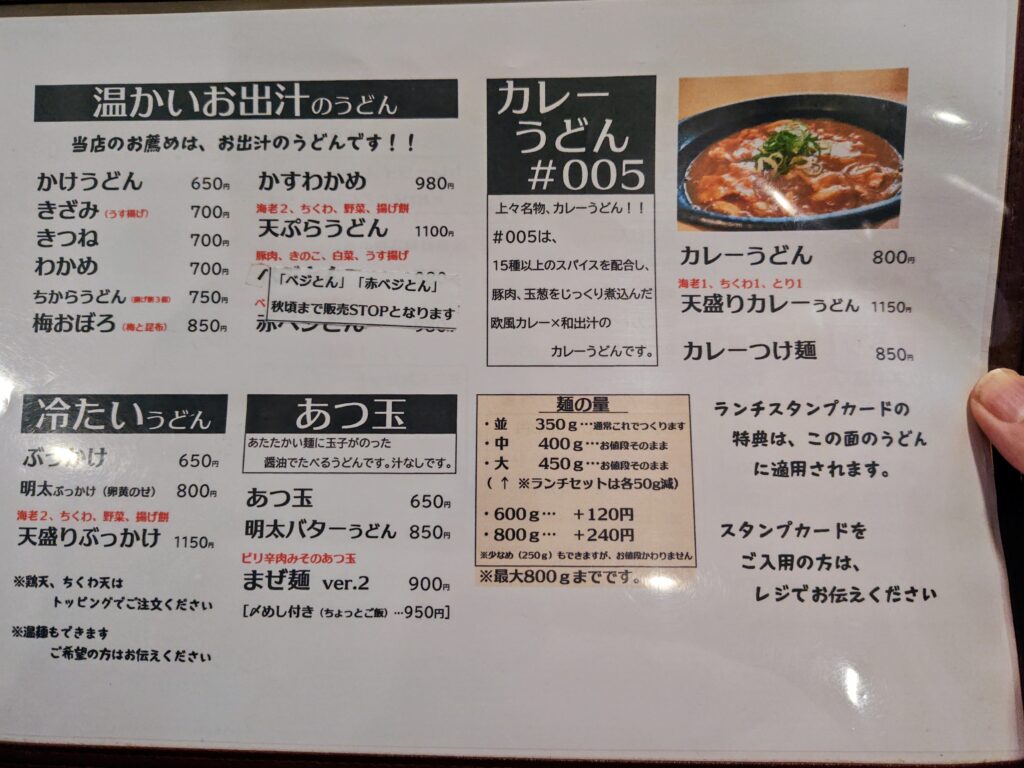 温かいお出汁のうどん
当店のお薦めは、お出汁のうどんです！！
かけうどん 650円
きざみ（うす揚げ） 700円
きつね 700円
わかめ 700円
ちからうどん（揚げ餅3個） 750円
梅おぼろ（梅と昆布） 850円
かすわかめ 980円
海老2、ちくわ、野菜、揚げ餅
天ぷらうどん 1100円
豚肉、きのこ、白菜、うす揚げ
「ベジとん」「赤ベジとん」
秋頃まで販売STOPとなります
赤ベジとん
カレー
うどん
#005
上々名物、カレーうどん！！
#005は、
15種以上のスパイスを配合し、
豚肉、玉葱をじっくり煮込んだ
欧風カレー×和出汁の
カレーうどんです。
カレーうどん 800円
海老1、ちくわ1、とり1
天盛りカレーうどん 1150円
カレーつけ麺 850円
冷たいうどん
ぶっかけ 650円
明太ぶっかけ（卵黄のせ） 800円
海老2、ちくわ、野菜、揚げ餅
天盛りぶっかけ 1150円
※鶏天、ちくわ天は
トッピングでご注文ください
※温麺もできます
ご希望の方はお伝えください
あつ玉
あたたかい麺に玉子がのった
醤油でたべるうどんです。汁なしです。
あつ玉 650円
明太バターうどん 850円
ピリ辛肉みそのあつ玉
まぜ麺 ver.2 900円
［〆めし付き（ちょっとご飯）…950円］
麺の量
・並 350g…通常これでつくります
・中 400g…お値段そのまま
・大 450g…お値段そのまま
（↑ ※ランチセットは各50g減）
・600g… +120円
・800g… +240円
※少なめ（250g）もできますが、お値段かわりません
※最大800gまでです。
ランチスタンプカードの
特典は、この面のうどん
に適用されます。
スタンプカードを
ご入用の方は、
レジでお伝えください